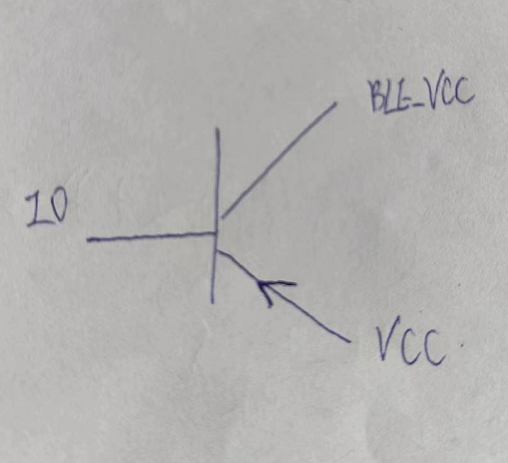 BLE_VCC
IO
VCC